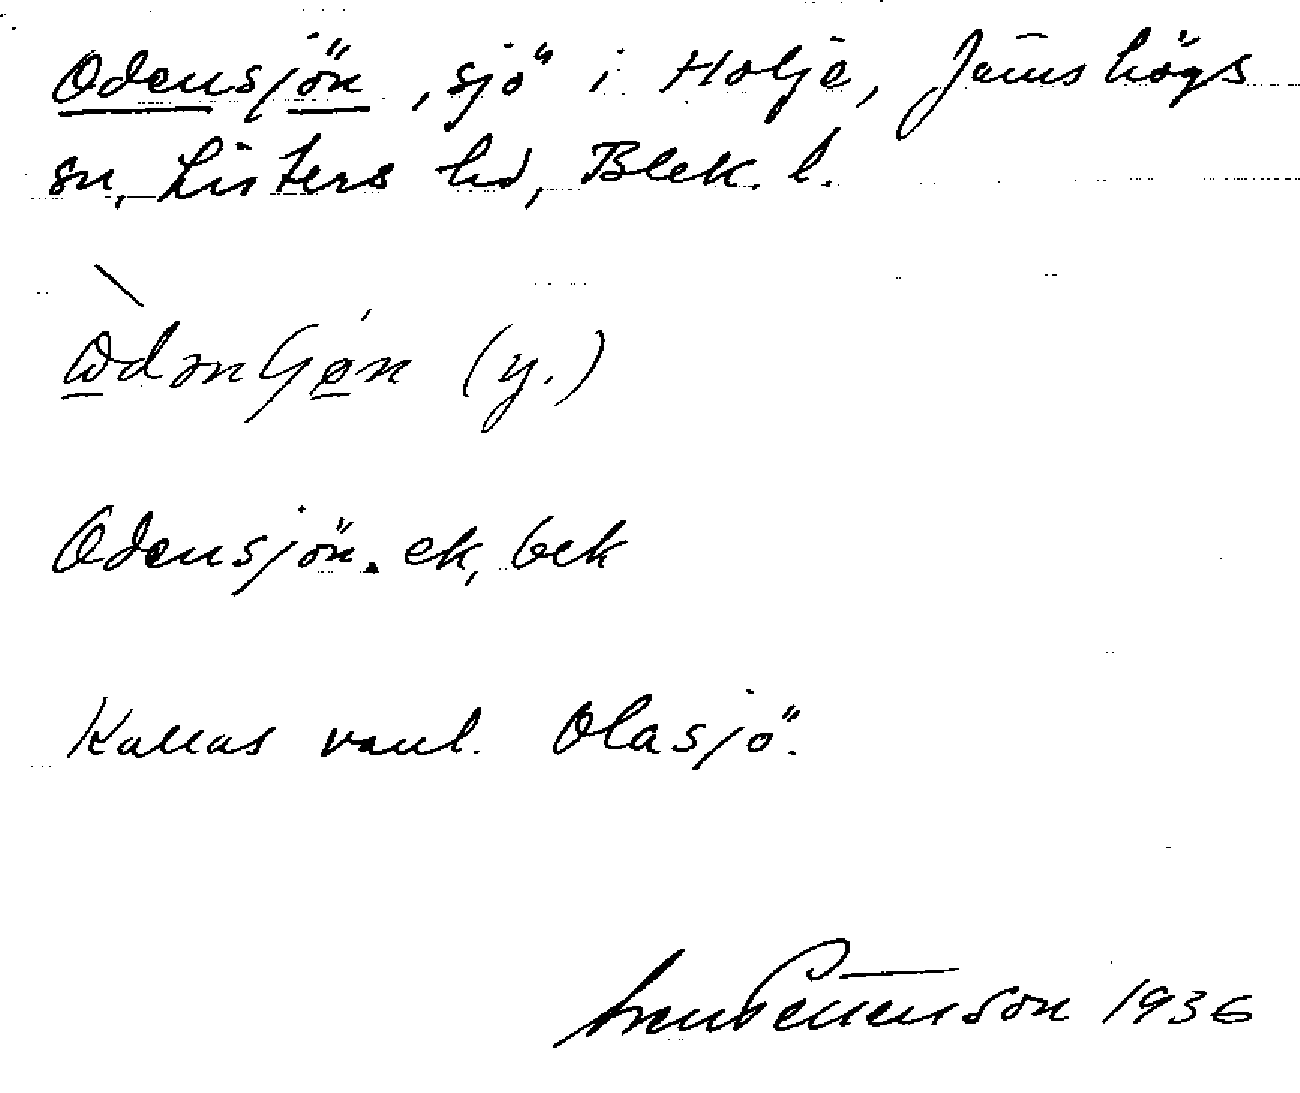 Odensjön, sjö i Holje, Jämshögs
sn, Listers hd, Blek. l.
(y.)
Odensjön. ek, bek
Kallas vanl. Olasjö.
Sven Pettersson 1936